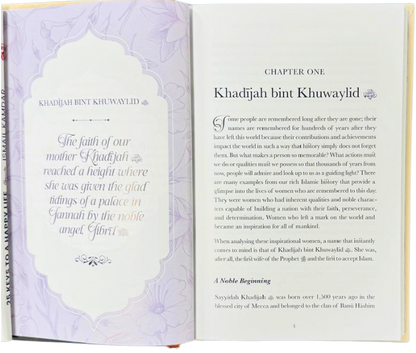 KHADĪJAH BINT KHUWAYLID
The faith of our
mother Khadījah
reached a height where
she was given the glad
tidings of a palace in
Jannah by the noble
angel Jibrīl
25 KEYS TO A HAPPY LIFE
ISMAIL KAMDAR
CHAPTER ONE
Khadījah bint Khuwaylid
Some people are remembered long after they are gone; their
names are remembered for hundreds of years after they
have left this world because their contributions and achievements
impact the world in such a way that history simply does not forget
them. But what makes a person so memorable? What actions must
we do or qualities must we possess so that thousands of years from
now, people will admire and look up to us as a guiding light? There
are many examples from our rich Islamic history that provide a
glimpse into the lives of women who are remembered to this day.
They were women who had inherent qualities and noble charac-
ters capable of building a nation with their faith, perseverance,
and determination. Women who left a mark on the world and
became an inspiration for all of mankind.
When analysing these inspirational women, a name that instantly
comes to mind is that of Khadījah bint Khuwaylid. She was,
after all, the first wife of the Prophet and the first to accept Islam.
A Noble Beginning
Sayyidah Khadījah was born over 1,500 years ago in the
blessed city of Mecca and belonged to the clan of Banū Hāshim